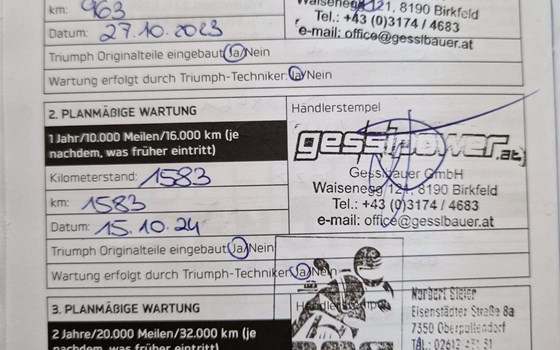 km: 963
Datum: 27.10.2023
Triumph Originalteile eingebaut Ja/Nein
Wartung erfolgt durch Triumph-Techniker Ja/Nein
Waisenegg 121, 8190 Birkfeld
Tel.: +43 (0)3174 / 4683
e-mail: office@gesslbauer.at
2. PLANMÄßIGE WARTUNG
1 Jahr/10.000 Meilen/16.000 km (je
nachdem, was früher eintritt)
Kilometerstand: 1583
km: 1583
Datum: 15.10.24
Triumph Originalteile eingebaut Ja/Nein
Wartung erfolgt durch Triumph-Techniker Ja/Nein
Händlerstempel
gesslpower.at
Gesslbauer GmbH
Waisenegg 121, 8190 Birkfeld
Tel.: +43 (0)3174 / 4683
e-mail: office@gesslbauer.at
3. PLANMÄßIGE WARTUNG
2 Jahre/20.000 Meilen/32.000 km (je
nachdem, was früher eintritt)
Händlerstempel
Norbert
Eisenstädter Straße 8a
7350 Oberpullendorf
Tel.: 02612